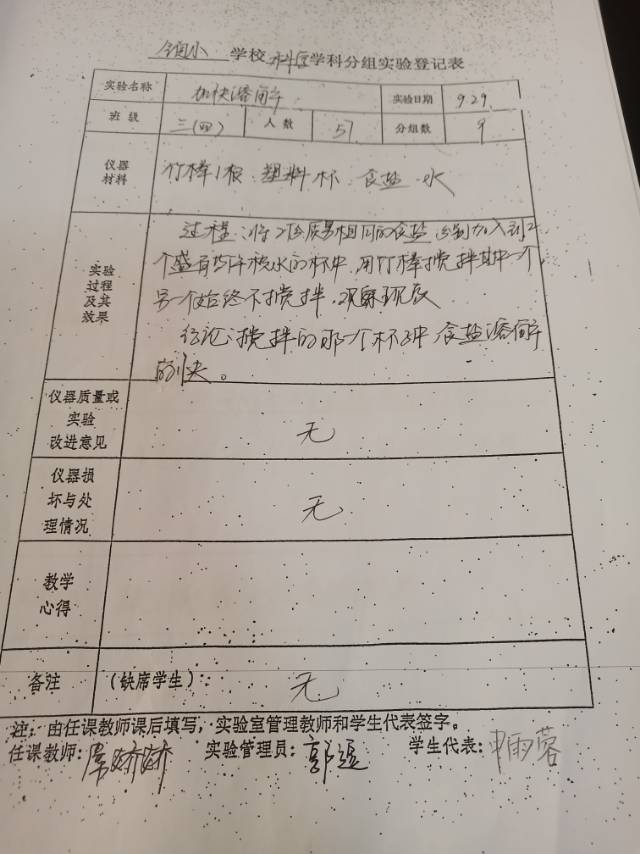 学校 科学 学科分组实验登记表
实验名称 加快溶解 实验日期 9.29.
班级 三(四) 人数 57 分组数 9
仪器材料 竹棒1根、塑料杯、食盐、水
实验过程及其效果 过程:将2份质量相同的食盐 分别加入到2
个盛有 水的杯中,用竹棒搅拌其中一个,
另一个始终不搅拌,观察
结论:搅拌的那一个杯子中 食盐溶解
的快。
仪器质量或实验改进意见 无
仪器损坏与处理情况 无
教学心得
备注 (缺席学生): 无
注:由任课教师课后填写,实验室管理教师和学生代表签字。
任课教师:常娇娇 实验管理员:郭 学生代表: 雨蓉